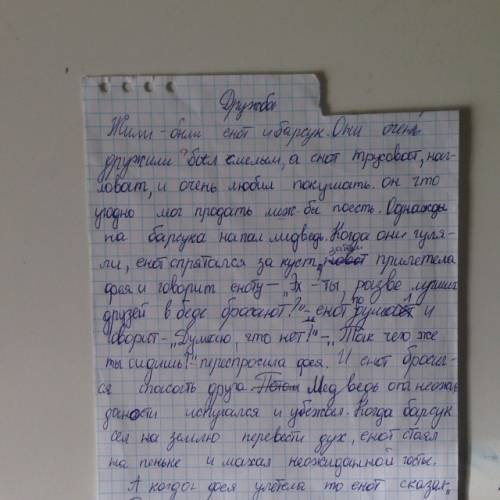 Дружба
Жили-были енот и барсук. Они очень
дружили был смелым, а енот трусоват, наг-
ловат, и очень любил покушать. он что
угодно мог продать лиж бы поесть. Однажды
на барсука напал медведь. Когда они гуля-
ли, енот спрятался за куст, прилетела
фея и говорит еноту - „Эх - ты, разве лучших
друзей в беде бросают?" - енот и
говорит - „Думаю, что нет!" - „Так чего же
ты сидишь?" переспросила фея. И енот бросил-
ся спасость друга. Потом Медведь от неожи
даности испугался и убежал. Когда барсук
сел на землю перевести дух, енот стоял
на пеньке и махал неожиданной гостье.
А когда фея улетела то енот сказал,